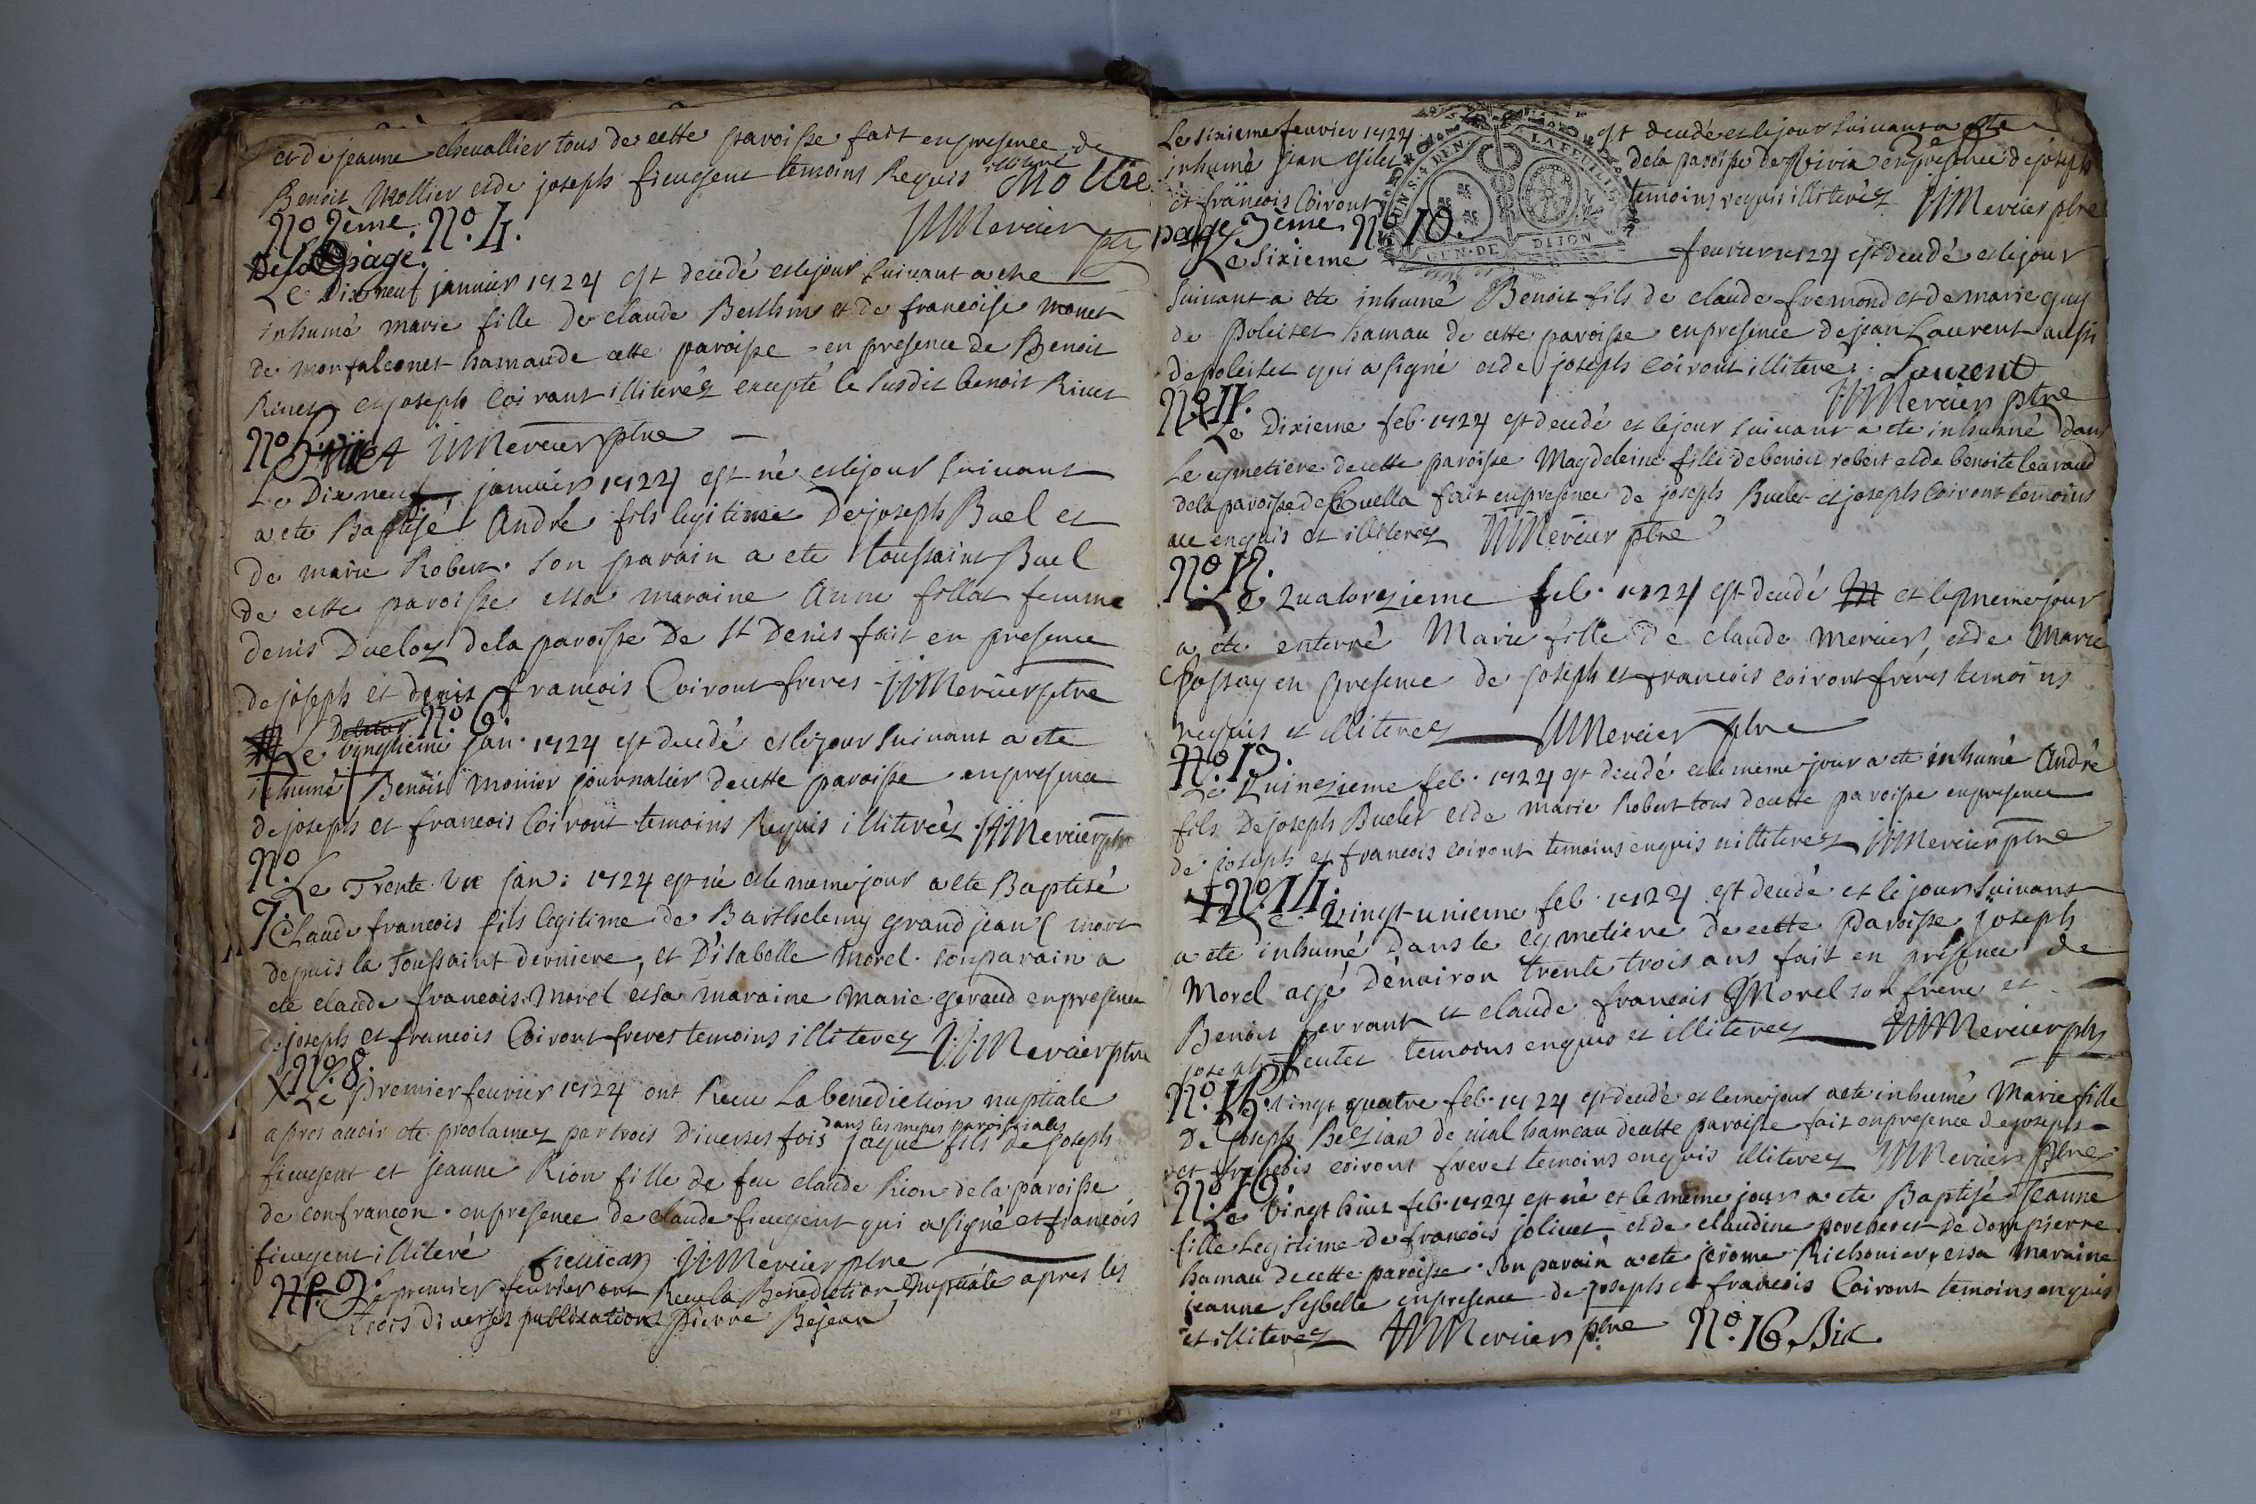 et de jeanne chevallier tous de cette paroisse fait en presence de
Benoit Mollier et de joseph fieugent temoins Requis
No 2eme No. 4.
De la page
JJMercier
Le Dixneuf janvier 1724 est decedé et le jour suivant a ete
inhumé marie fille de claude Berthin et de francoise monet
de monfalconet hamau de cette paroisse en presence de Benoit
Rivet et joseph Coiront illiterés excepté le susdit benoit Rivet
No 5. JJMercier ptre
Le Dixneuf janvier 1724 est né et le jour suivant
a ete Baptisé André fils legitime De joseph Buel et
de marie Robert. son parain a ete toussaint Buel
de cette paroisse et sa maraine Anne follat femme
denis Dueloz de la paroisse De St Denis fait en presence
de joseph et denis francois Coiront freres JJMercier ptre
No. 6.
Le vingtieme jan. 1724 est decedé et le jour suivant a ete
inhumé Benoit Monier journalier de cette paroisse en presence
de joseph et francois Coiront temoins Requis illiterés JJMercier ptre
No.
Le Trente Un jan: 1724 est né et le meme jour a ete Baptisé
7 Claude francois fils legitime de Barthelemy grand jean ( mort
depuis la Toussaint derniere, et D'isabelle Morel. son parain a
ete claude francois Morel et sa maraine Marie geraud en presence
de joseph et francois Coiront freres temoins illiterez JJMercier ptre
No. 8.
Le premier fevrier 1724 ont Receu La benediction nuptiale
dans les messes paroissiales
apres avoir ete proclamez par trois Diverses fois jaque fils de joseph
fieugent et jeanne Rion fille de feu claude Rion de la paroisse
de confrancon. en presence de claude fieugent qui a signé et francois
fieugent illiteré JJMercier ptre
No. 9. Le premier fevrier ont Receu la Benediction Nuptiale apres les
trois diverses publications pierre Bejean
Le sixieme fevrier 1724 est decedé et le jour suivant a ete
inhumé jean de la paroisse de en presence de joseph
et francois Coiront temoins requis illiterez JJMercier ptre
GEN·DE DIJON
page 3eme. No 10.
Le sixieme fevrier 1724 est decedé et le jour
suivant a ete inhumé Benoit fils de claude fremond et de marie guy
de poleiset hamau de cette paroisse en presence de jean Laurent aussi
de poleiset qui a signé et de joseph coiront illiteré. Laurent
No 11. JJMercier ptre
Le Dixieme feb. 1724 est decedé et le jour suivant a ete inhumé dans
Le cymetiere de cette paroisse Magdeleine fille de benoit robert et de benoite
de la paroisse de fait en presence de joseph Buelet et joseph Coiront temoins
a ce enquis et illiterez JJMercier ptre
No. 12.
Le Quatorezieme feb. 1724 est decedé et le meme jour
a ete enterré Marie fille de claude mercier et de Marie
en presence de joseph et francois coiront freres temoins
requis et illiterez JJMercier ptre
No. 13.
Le Quinezieme feb. 1724 est decedé et le meme jour a ete inhumé André
fils De joseph Buelet et de marie Robert tous de cette paroisse en presence
de joseph et francois coiront temoins enquis illiterez JJMercier ptre
No. 14.
Le vingt unieme feb. 1724 est decedé et le jour suivant
a ete inhumé dans le cymetiere de cette paroisse joseph
Morel agé d'environ trente trois ans fait en presence de
Benoit ferrant et claude francois Morel son frere et
joseph temoins enquis et illiterez JJMercier ptre
No. 15. vingt quatre feb. 1724 est decedé et le me jour a ete inhumé Marie fille
De joseph Bezian de vial hameau de cette paroisse fait en presence de joseph
et francois coiront freres temoins enquis illiterez JJMercier ptre
No. 16.
Le vingt huit feb. 1724 est né et le meme jour a ete Baptisé jeanne
fille legitime de francois jolivet et de claudine porcheret de dompierre
hamau de cette paroisse. son parain a ete jerome Richonier, et sa maraine
jeanne seybelle en presence de joseph et francois Coiront temoins enquis
et illiterez JJMercier ptre No. 16 Bic